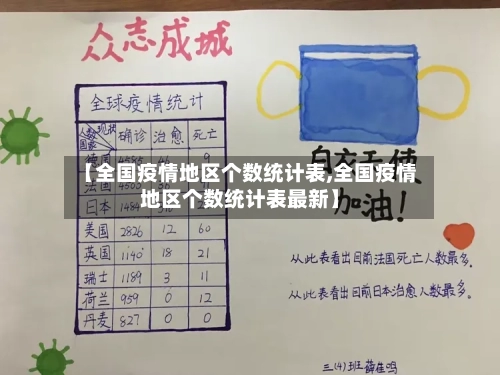 众志成城
全球疫情统计
人数 现状 国家 确诊 治愈 死亡
德国 9
法国 4503
日本 1484
美国 2826 12 60
英国 1140 18 21
瑞士 1189 3 11
荷兰 959 0 12
丹麦 827 0 0
【全国疫情地区个数统计表,全国疫情
地区个数统计表最新】
白衣天使
加油!
从此表看出目前法国死亡人数最多.
从此表看出目前日本治愈人数最多。
三(4)班